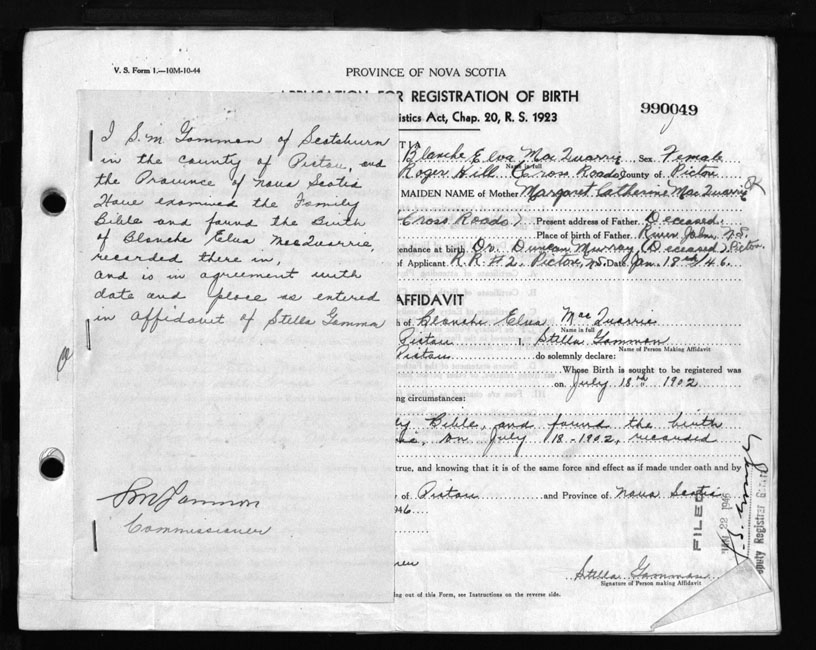 V. S. Form 1.—10M-10-44
PROVINCE OF NOVA SCOTIA
APPLICATION FOR REGISTRATION OF BIRTH
990049
istics Act, Chap. 20, R. S. 1923
I S. M Gammon of Scotsburn
in the county of Pictou, and
the Province of nova Scotia
Have examined the Family
Bible and found the Birth
of Blanche Elva MacQuarrie,
recorded there in,
and is in agreement with
date and place as entered
in affidavit of Stella Gammon
SM Gammon
Commissioner
Blanche Elva MacQuarrie Sex Female
Name in full
Roger Hill (Cross Roads) County of Pictou
MAIDEN NAME of Mother Margaret Catherine MacQuarrie
Cross Roads) Present address of Father Deceased
Place of birth of Father River John N.S.
endance at birth Dr. Duncan Murray (Deceased) Pictou.
of Applicant R.R.#2. Pictou, N.S. Date Jan. 18th/46.
AFFIDAVIT
h of Blanche Elva MacQuarrie
Name in full
Pictou I, Stella Gammon
Name of Person Making Affidavit
Pictou do solemnly declare:
Whose Birth is sought to be registered was
on July 18th 1902
ing circumstances:
ly Bible, and found the birth
on July 18-1902, recorded
true, and knowing that it is of the same force and effect as if made under oath and by
of Pictou and Province of Nova Scotia
946
FILED
puty Registrar
Stella Gammon
Signature of Person making Affidavit
ing out of this Form, see Instructions on the reverse side.